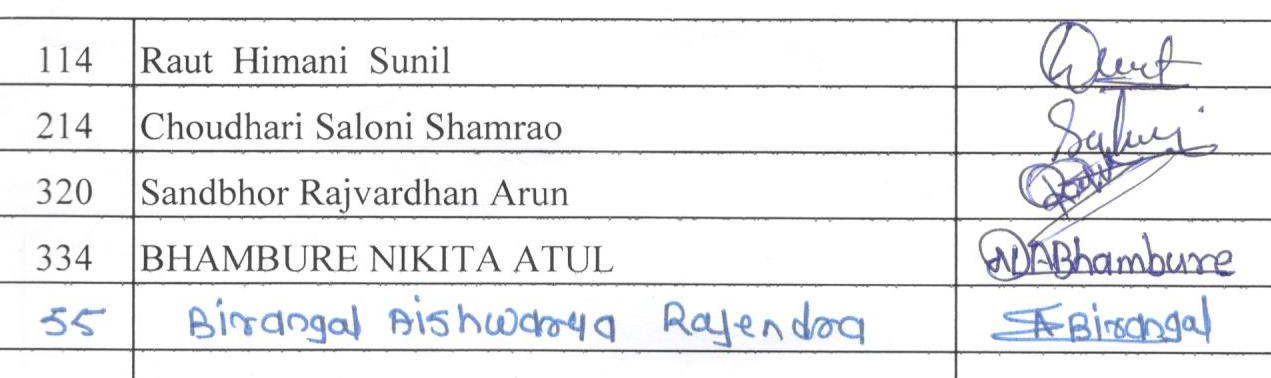 114 Raut Himani Sunil
214 Choudhari Saloni Shamrao Saloni
320 Sandbhor Rajvardhan Arun
334 BHAMBURE NIKITA ATUL NABhambure
55 Birangal Aishwarya Rajendra ABirangal